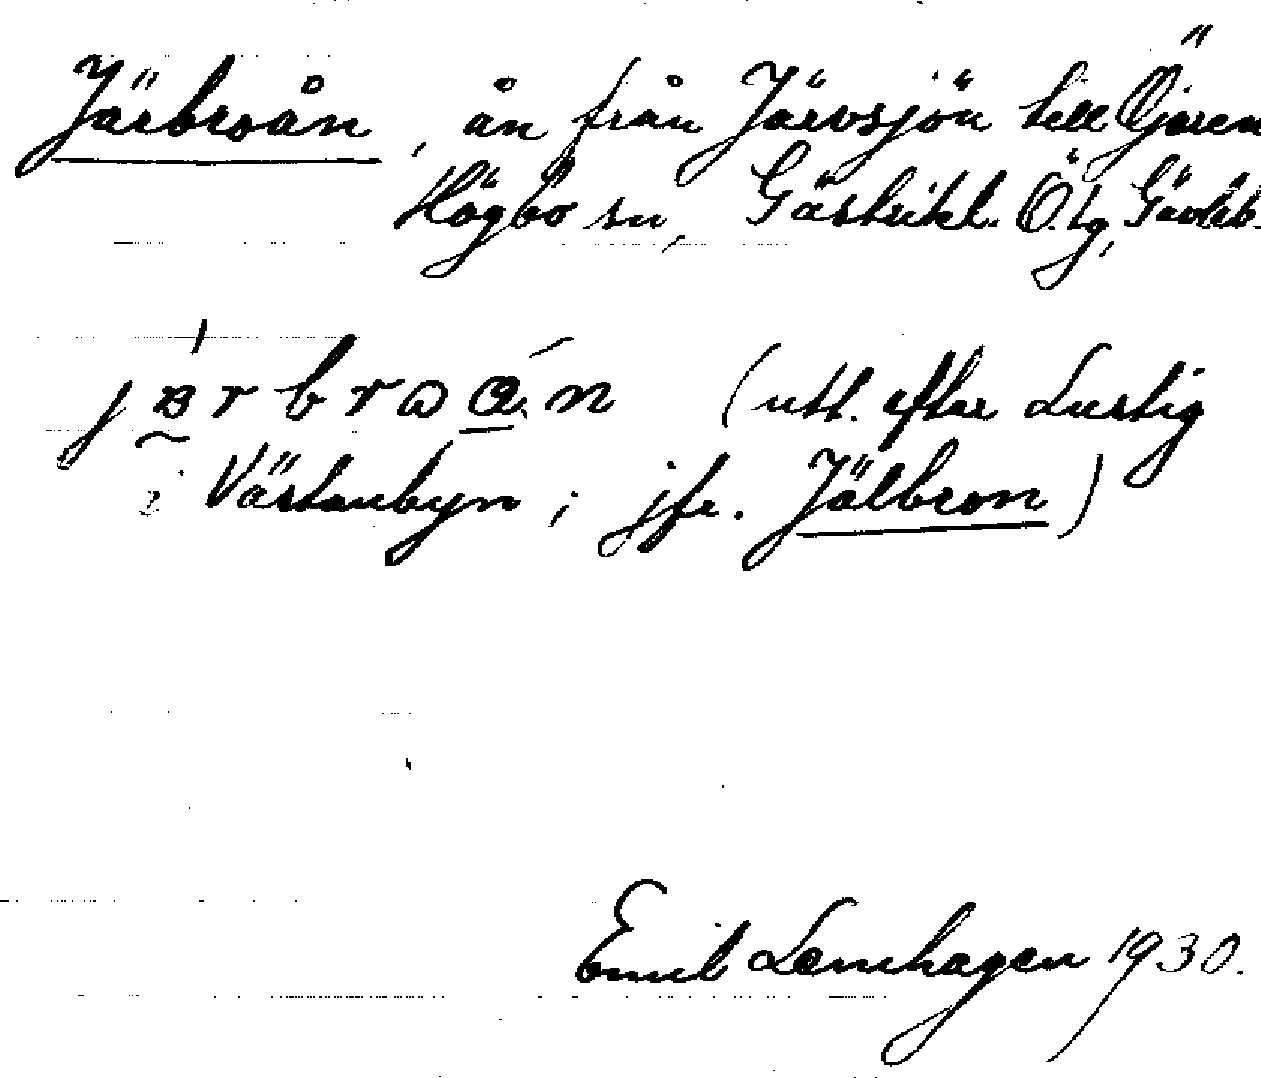 Järbroån, ån från Järvsjön till Öjaren
Högbo sn, Gästrikl. Ö. tg, Gävleb.
(utt. efter Lustig
i Västanbyn; jfr. Jälbron)
Emil Lenhagen 1930.